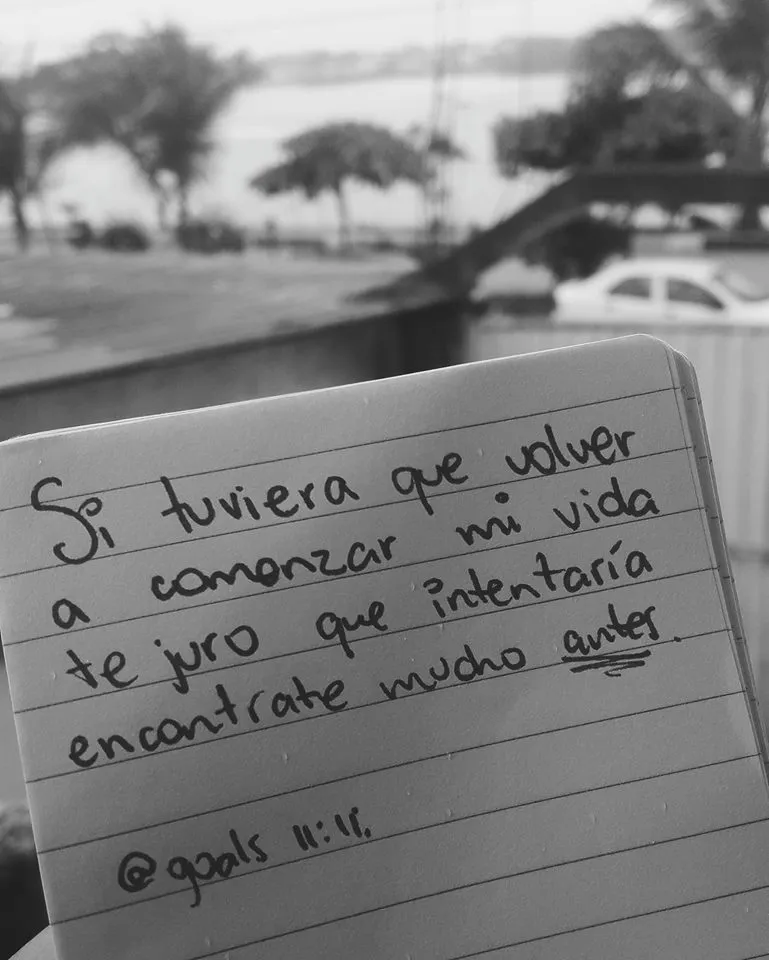 Si tuviera que volver
a comenzar mi vida
te juro que intentaría
encontrate mucho antes.
@goals 11:11.